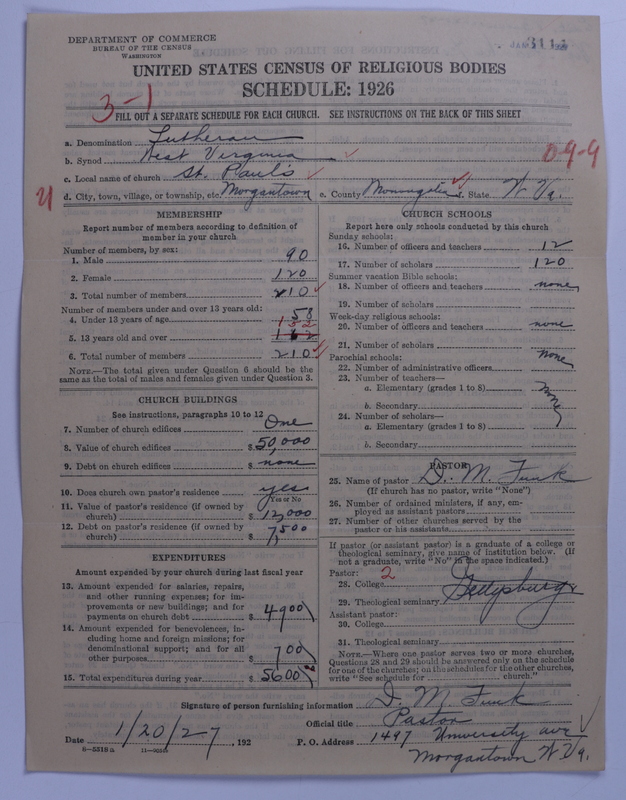 DEPARTMENT OF COMMERCE
BUREAU OF THE CENSUS
WASHINGTON
UNITED STATES CENSUS OF RELIGIOUS BODIES
SCHEDULE: 1926
3-1
FILL OUT A SEPARATE SCHEDULE FOR EACH CHURCH. SEE INSTRUCTIONS ON THE BACK OF THIS SHEET
a. Denomination Lutheran
b. Synod West Virginia
0-9-9
c. Local name of church St. Paul's
d. City, town, village, or township, etc. Morgantown e. County Monongalia f. State W Va.
MEMBERSHIP
Report number of members according to definition of
member in your church
Number of members, by sex:
1. Male 90
2. Female 120
3. Total number of members 210
Number of members under and over 13 years old:
4. Under 13 years of age 58
5. 13 years old and over 152
6. Total number of members 210
NOTE.—The total given under Question 6 should be the
same as the total of males and females given under Question 3.
CHURCH BUILDINGS
See instructions, paragraphs 10 to 12
7. Number of church edifices One
8. Value of church edifices $ 50,000
9. Debt on church edifices $ none
10. Does church own pastor's residence yes
Yes or No
11. Value of pastor's residence (if owned by
church) $ 12,000
12. Debt on pastor's residence (if owned by
church) $ 7,500
EXPENDITURES
Amount expended by your church during last fiscal year
13. Amount expended for salaries, repairs,
and other running expenses; for im-
provements or new buildings; and for
payments on church debt $ 4900
14. Amount expended for benevolences, in-
cluding home and foreign missions; for
denominational support; and for all
other purposes $ 700
15. Total expenditures during year $ 5600
CHURCH SCHOOLS
Report here only schools conducted by this church
Sunday schools:
16. Number of officers and teachers 12
17. Number of scholars 120
Summer vacation Bible schools:
18. Number of officers and teachers none
19. Number of scholars
Week-day religious schools:
20. Number of officers and teachers none
21. Number of scholars
Parochial schools:
22. Number of administrative officers none
23. Number of teachers—
a. Elementary (grades 1 to 8) none
b. Secondary
24. Number of scholars—
a. Elementary (grades 1 to 8)
b. Secondary
PASTOR
25. Name of pastor D. M. Funk
(If church has no pastor, write "None")
26. Number of ordained ministers, if any, em-
ployed as assistant pastors
27. Number of other churches served by the
pastor or his assistants
If pastor (or assistant pastor) is a graduate of a college or
theological seminary, give name of institution below. (If
not a graduate, write "No" in the space indicated.)
Pastor: 2
28. College
29. Theological seminary Gettysburg
Assistant pastor:
30. College
31. Theological seminary
NOTE.—Where one pastor serves two or more churches,
Questions 28 and 29 should be answered only on the schedule
for one of the churches; on the schedules for the other churches,
write "See schedule for church."
Signature of person furnishing information D. M. Funk
Official title Pastor
Date 1/20/27, 192 P. O. Address 1497 University ave
Morgantown W Va.
8-5318 a